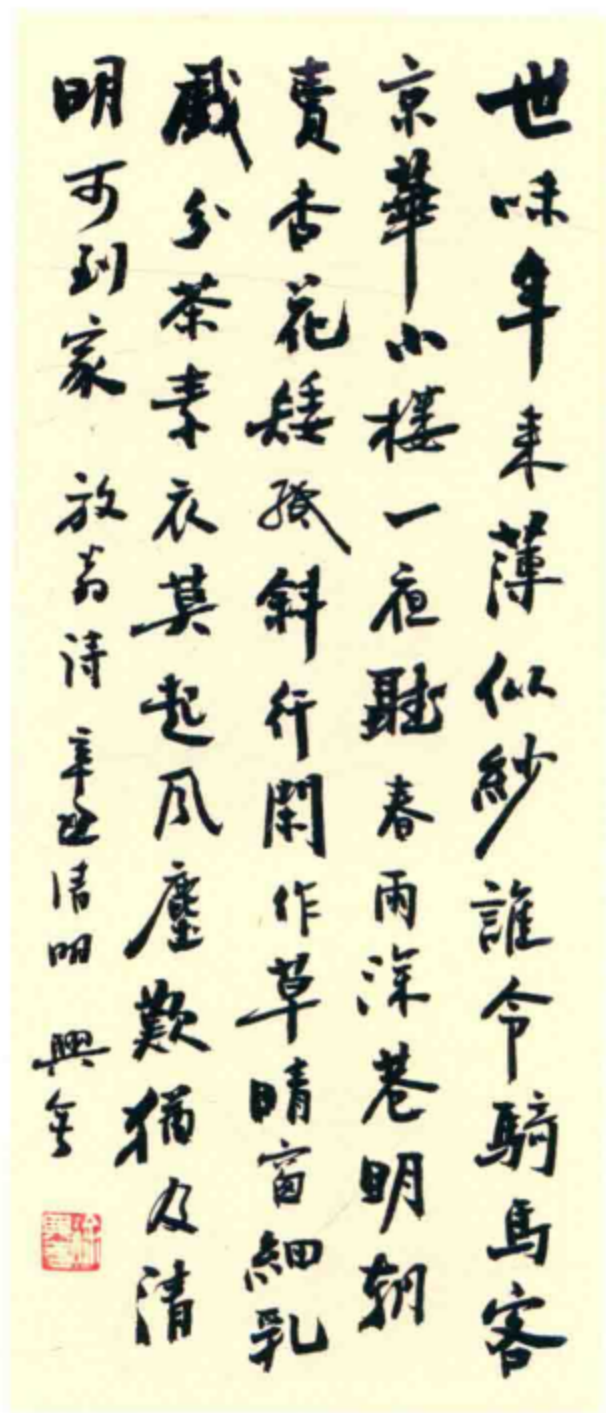 世味年来薄似紗誰令騎馬客
京華小樓一夜聽春雨深巷明朝
賣杏花矮紙斜行閑作草晴窗細乳
戲分茶素衣莫起风塵歎猶及清
明可到家 放翁诗 辛 清明 興